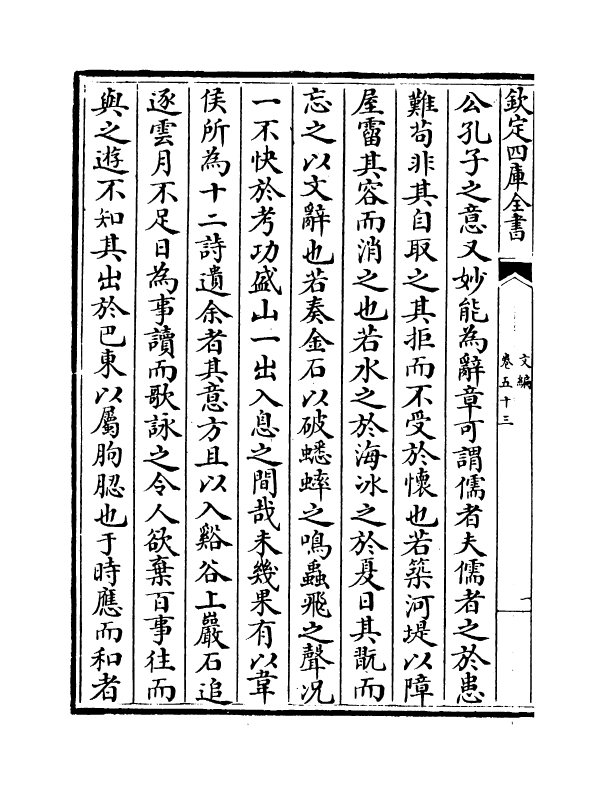 欽定四庫全書
文編
卷五十三
公孔子之意又妙能為辭章可謂儒者夫儒者之於患
難苟非其自取之其拒而不受於懷也若築河堤以障
屋霤其容而消之也若水之於海冰之於夏日其翫而
忘之以文辭也若奏金石以破蟋蟀之鳴蟲飛之聲况
一不快於考功盛山一出入息之間哉未幾果有以韋
侯所為十二詩遺余者其意方且以入谿谷上巖石追
逐雲月不足日為事讀而歌詠之令人欲棄百事往而
與之遊不知其出於巴東以屬朐䏰也于時應而和者